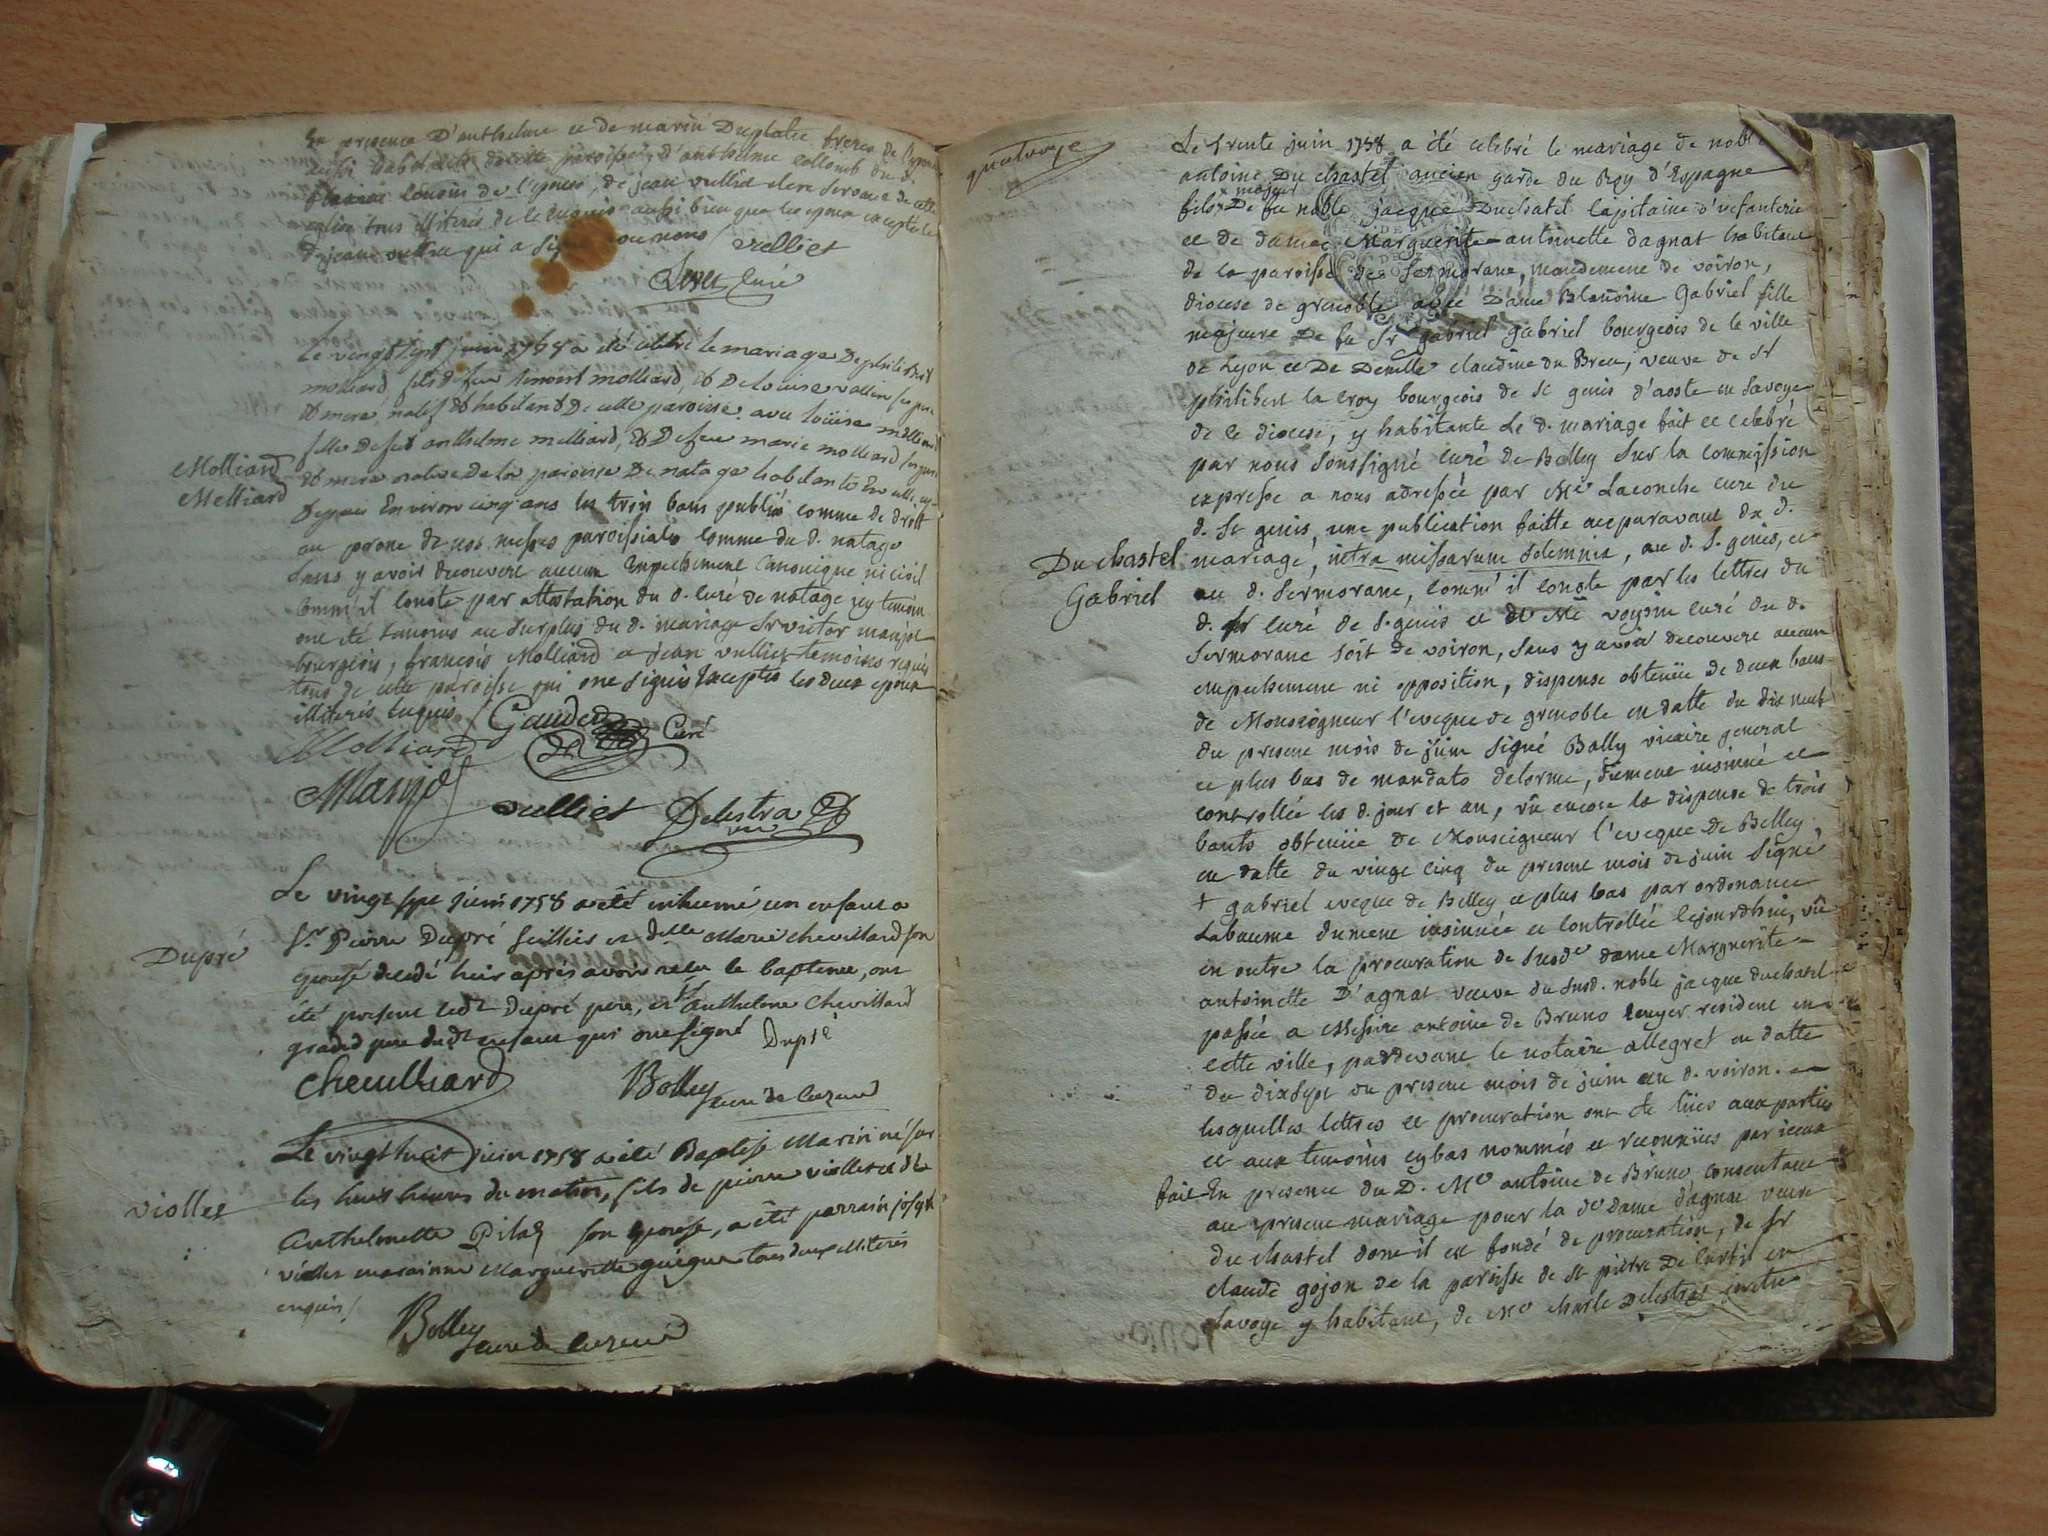 En presence D'anthelme et de marin Duplatre freres de l'epouse
aussi habitants de cette paroisse, d'anthelme collomb du d.
cousin de l'epouse, de jean vulliet clerc serome de cette
tous illiteres de ce enquis aussi bien que les epoux excepté le
d. jean vulliet qui a signé avec nous vulliet
curé
Le vingt sept juin 1758 a été celebré le mariage De philibert
molliard fils de feu benoist molliard, et De louise vallin ses pere
et mere, natif et habitant De cette paroisse. avec loüise molliard
fille de feu anthelme melliard, et De feue marie molliard ses pere
et mere native De la paroisse De natage habitante En celle cy
Molliard
Melliard
depuis Environ cinq ans les trois bans publiés comme de droit
au prone de nos messes paroissiales comme du d. natage
sans y avoir decouvert aucun Empechement Canonique ni civil
comm'il conste par attestation du d. curé de natage, les temoins
ont été connus au surplus du d. mariage Sr victor manjot
bourgeois, françois Molliard et jean vulliet temoins requis
tous de cette paroisse qui ont signés Exceptés les deux epoux
illiterés enquis
Molliard Gaudet Curé
Manjot
vulliet Delestra
Le vingt sept juin 1758 a été inhumé, un enfant a
Dupré
Sr. Pierre Dupré sellier et dlle Marie chevillard son
epouse decedé hier aprés avoir recu le bapteme, ont
été present ledt Dupré pere, et Sr anthelme Chevillard
grand pere dudt enfant qui ont signé Dupré
Chevilliard Bolley
curé de
Le vingt huit juin 1758 a été Baptisé Marin né sur
violles
les huit heures du matin, fils de pierre violles et de
Anthelmette Pilaz son epouse, a été parrain joseph
violles maraine Marguerite guigue tous deux illiterés
enquis/.
Bolley
curé de
Le trente juin 1758 a été celebré le mariage de noble
antoine Du chastel ancien garde du Roy d'Espagne
fils majeur De feu noble jacque Duchatel Capitaine d'infanterie
et de dame Marguerite-antoinette dagnat habitant
de la paroisse de sermorane, mandement de voiron,
diocese de grenoble avec Dame Blandine Gabriel fille
majeure De feu Sr gabriel gabriel bourgeois de la ville
de Lyon et De Demlle claudine du Breu, veuve de Sr
philibert la croy bourgeois de St genis d'aoste en savoye
de ce diocese, y habitante Le d. mariage fait et celebré
par nous soussigné curé de Belley sur la commission
expresse a nous adressée par Me Laconche curé du
d. St genis, une publication faitte auparavant du d.
Du chastel
Gabriel
mariage, intra missarum solemnia, au d. S. genis, et
au d. sermorane, comm'il conste par les lettres du
d. Sr curé de S. genis et de Me voysin curé du d.
sermorane soit de voiron, sans y avoir decouvert aucun
empechement ni opposition, dispense obtenüe de deux bans
de Monseigneur l'eveque de grenoble en datte du dix neuf
du present mois de juin signé Bally vicaire general
et plus bas de mandato delorme, düement insinuée et
controllée les d. jour et an, vû encore la dispense de trois
bants obtenüe de Monseigneur l'eveque de Belley
en datte du vingt cinq du present mois de juin signé
† gabriel eveque de Belley et plus bas par ordonance
Labaume dument insinuée et controllée cejourdhui, vû
en outre la procuration de susde dame Marguerite-
antoinette D'agnat veuve du susd. noble jacque duchatel
passée a Messire antoine de Bruno ecuyer resident en
cette ville, pardevant le notaire allegret en datte
du dixsept du present mois de juin au d. voiron.
lesquelles lettres et procuration ont été lües aux parties
et aux temoins cybas nommés et reconnües par iceux
fait En presence du D. Me antoine de Bruno consentant
au present mariage pour la de dame d'agnat veuve
du chastel dont il est fondé de procuration, de Sr
claude gojon de la paroisse de St pierre De Curtil en
savoye y habitant, de Me charle Delestra pretre